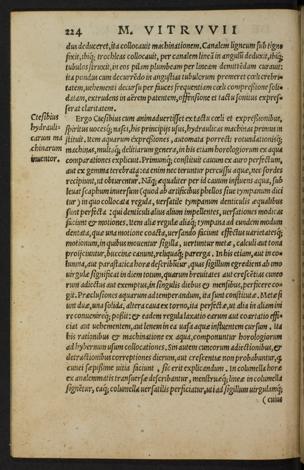 224 M. VITRVVII
dus deduceret, ita collocauit machinationem. Canalem ligneum sub tigno
fixit, ibiq́; trochleas collocauit, per canalem lineā in angulū deduxit, ibiq́;
tubulos struxit, in eos pilam plumbeam per lineam demittēdam curauit:
ita pondus cum decurrēdo in angustias tubulorum premeret cœli crebri-
tatem, vehementi decursu per fauces frequentiam cœli compressione soli-
datam, extrudens in aërem patentem, offensione et tactu sonitus expres-
serat claritatem.
Ctesibius
hydrauli-
carum ma
chinarum
inuentor.
Ergo Ctesibius cum animaduertisset ex tactu cœli et expressionibus,
spiritus vocesq́; nasci, his principijs vsus, hydraulicas machinas primus in
stituit, item aquarum expressiones, automata porrectí rotundationisq́;
machinas, multasq́; delitiarum genera, in his etiam horologiorum ex aqua
comparationes explicuit. Primumq́; constituit cauum ex auro perfectum,
aut ex gemma terebrata: ea enim nec teruntur percussu aquæ, nec sordes
recipiunt, vt obturentur. Nāq́; æqualiter per id cauum influens aqua, sub
leuat scaphum inuersum (quod ab artificibus phellos siue tympanum dici
tur) in quo collocata regula, versatile tympanum denticulis æqualibus
sunt perfecta: qui denticuli alius alium impellentes, versationes modicas
faciunt & motiones. Item aliæ regulæ aliaq́; tympana ad eundem modum
dentata, quæ vna motione coacta, versando faciunt effectus varietatesq́;
motionum, in quibus mouentur sigilla, vertuntur metæ, calculi aut tona
proijciuntur, buccinæ canunt, reliquaq́; parerga. In his etiam, aut in co
lumna, aut parastatica horæ describuntur, quas sigillum egrediens ab imo
virgulæ significat in diem totum, quarum breuitates aut crescētias cuneo
rum adiectus aut exemptus, in singulis diebus & mensibus, perficere co-
git. Præclusiones aquarum ad temperandum, ita sunt constitutæ. Metæ fi
unt duæ, vna solida, altera cauata ex torno, ita perfectæ, vt alia in aliam ini
re conuenireq́; possit: & eadem regula laxatio earum aut coartatio effi-
ciat aut vehementem, aut lenem in ea vasa aquæ influentem cursum, ita
his rationibus & machinatione ex aqua, componuntur horologiorum
ad hybernum vsum collocationes. Sin autem cuneorum adiectionibus, &
detractionibus correptiones dierum, aut crescentiæ non probabuntur, q̄
cunei sæpissime vitia faciunt, sic erit explicandum. In columella horæ
ex analemmatis transuersæ describantur, menstruæq́; lineæ in columella
signētur, eaq́; columella versatilis perficiatur, vt ad sigillum virgulamq́;
(cuius